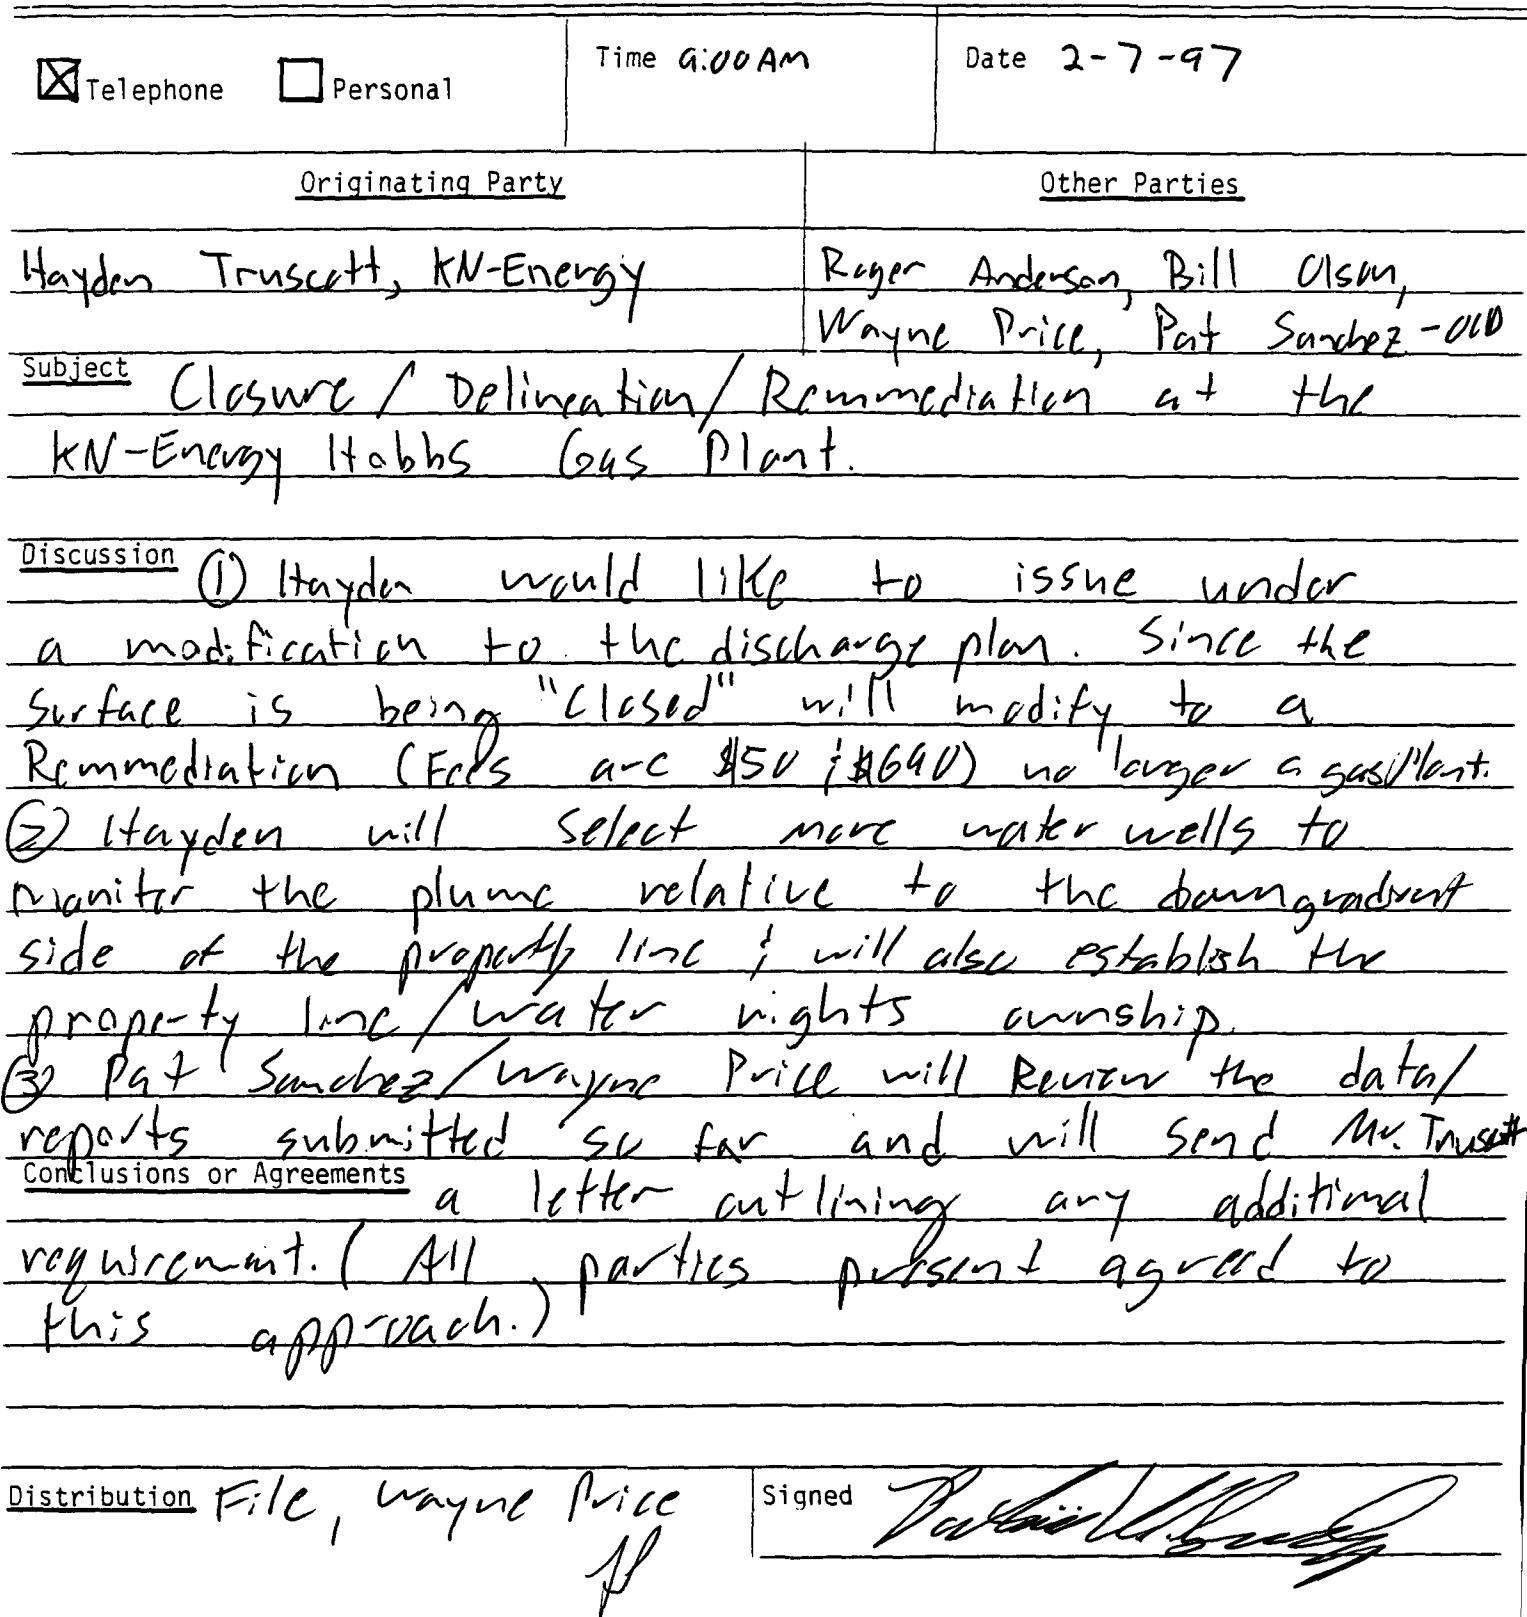 Telephone Personal Time 9:00 AM Date 2-7-97
Originating Party Other Parties
Hayden Truscott, KN-Energy Roger Anderson, Bill Olson,
Wayne Price, Pat Sanchez - OCD
Subject Closure / Delineation / Remmediation at the
KN-Energy Hobbs Gas Plant.
Discussion ① Hayden would like to issue under
a modification to the discharge plan. Since the
surface is being "Closed" will modify to a
Remmediation (Fees are $50 & $690) no longer a gas Plant.
② Hayden will select more water wells to
monitor the plume relative to the downgradient
side of the property line & will also establish the
property line / water rights ownship.
③ Pat Sanchez / Wayne Price will Review the data/
reports submitted so far and will send Mr. Truscott
Conclusions or Agreements a letter outlining any additional
requirement. ( All parties present agreed to
this approach.)
Distribution File, Wayne Price Signed